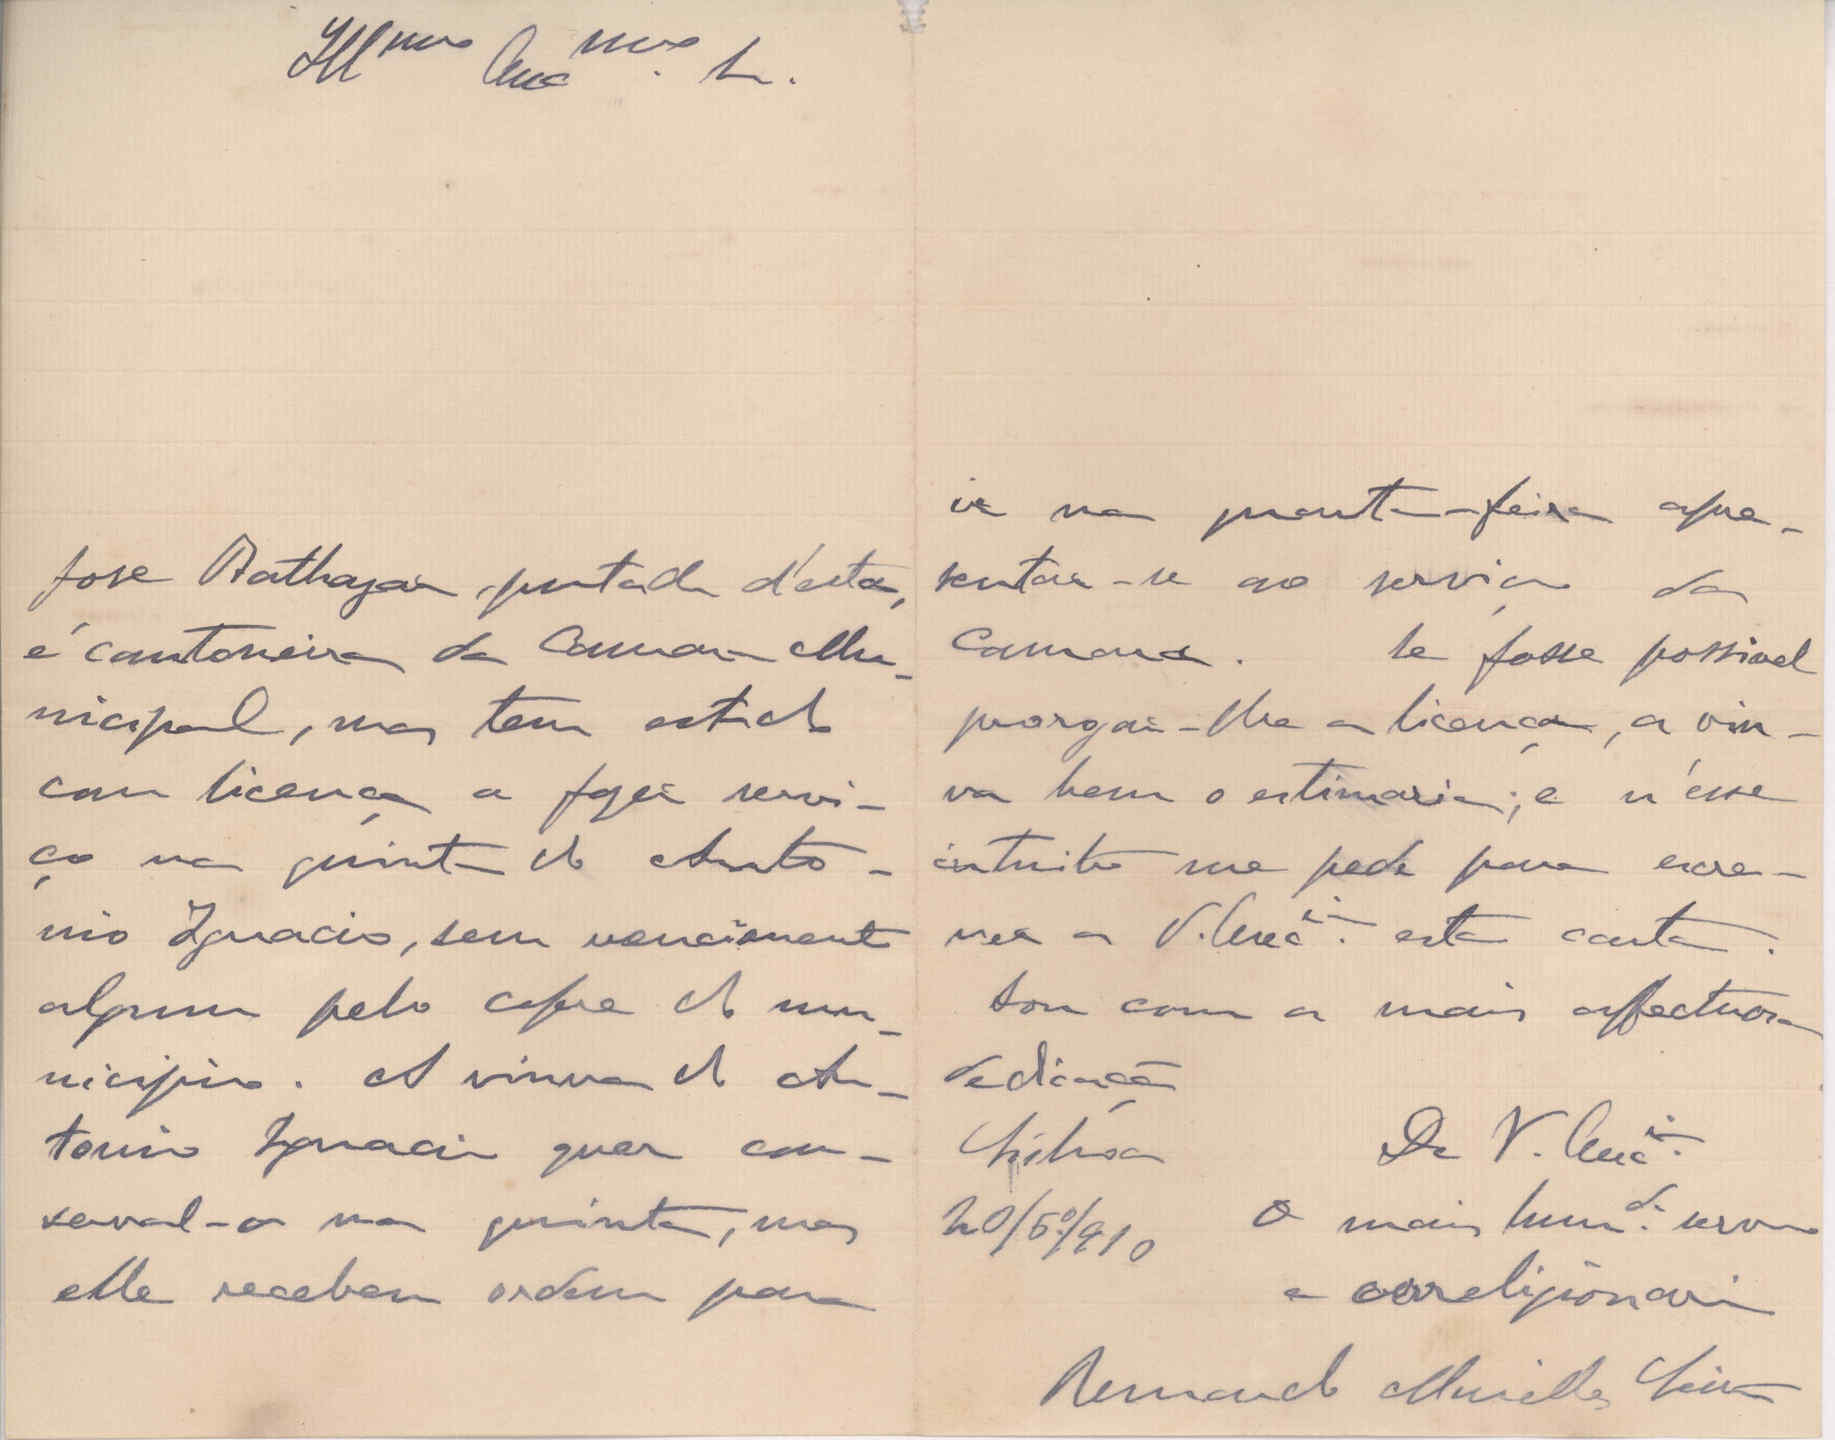 Ill.mo Exc.mo Sr.
José Balthazar, portador d'esta,
é cantoneiro da Camara Mu-
nicipal, mas tem estado
com licença a fazer servi-
ço na quinta do Anto-
nio Ignacio, sem vencimento
algum pelo cofre do mu-
nicipio. A viuva do An-
tonio Ignacio quer con-
serval-o na quinta, mas
elle recebeu ordem para
ir na quarta-feira apre-
sentar-se ao serviço da
Camara. Se fosse possivel
prorogar-lhe a licença, a viu-
va bem o estimaria; e n'esse
intuito me pede para escre-
ver a V. Exc.ia esta carta.
Sou com a mais affectuosa
dedicação
De V. Exc.ia
20/5º/910
O mais hum.de servo
e correligionario